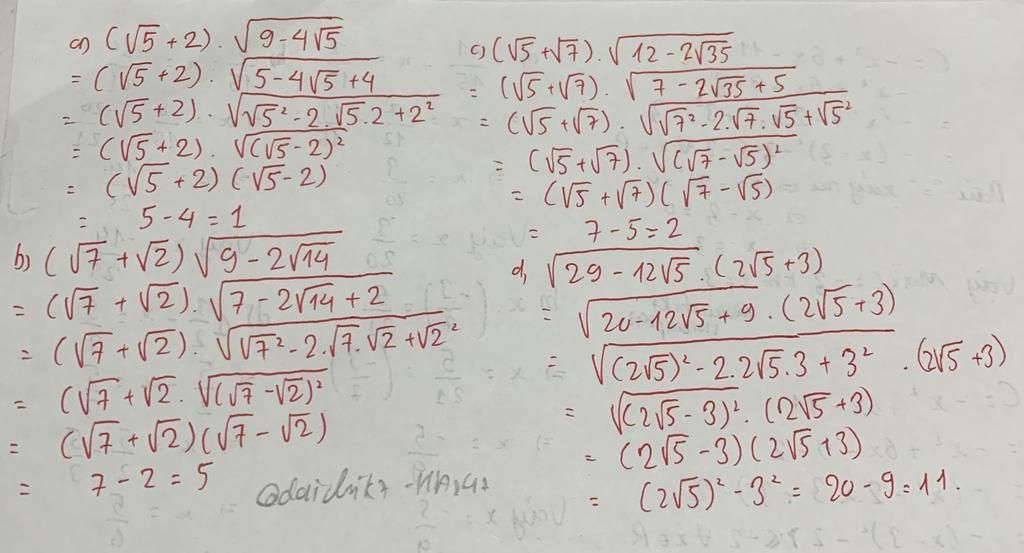 a) (√5 + 2) . √(9 - 4√5)
= (√5 + 2) . √(5 - 4√5 + 4)
= (√5 + 2) . √(√5² - 2.√5.2 + 2²)
= (√5 + 2) . √(√5 - 2)²
= (√5 + 2) (√5 - 2)
= 5 - 4 = 1
b) (√7 + √2) √(9 - 2√14)
= (√7 + √2) . √(7 - 2√14 + 2)
= (√7 + √2) . √(√7² - 2.√7.√2 + √2²)
= (√7 + √2 . √(√7 - √2)²
= (√7 + √2) (√7 - √2)
= 7 - 2 = 5
c) (√5 + √7) . √(12 - 2√35)
= (√5 + √7) . √(7 - 2√35 + 5)
= (√5 + √7) . √(√7² - 2.√7.√5 + √5²)
= (√5 + √7) . √(√7 - √5)²
= (√5 + √7) (√7 - √5)
= 7 - 5 = 2
d, √(29 - 12√5) . (2√5 + 3)
= √(20 - 12√5 + 9) . (2√5 + 3)
= √((2√5)² - 2.2√5.3 + 3²) . (2√5 + 3)
= √(2√5 - 3)² . (2√5 + 3)
= (2√5 - 3) (2√5 + 3)
= (2√5)² - 3² = 20 - 9 = 11.